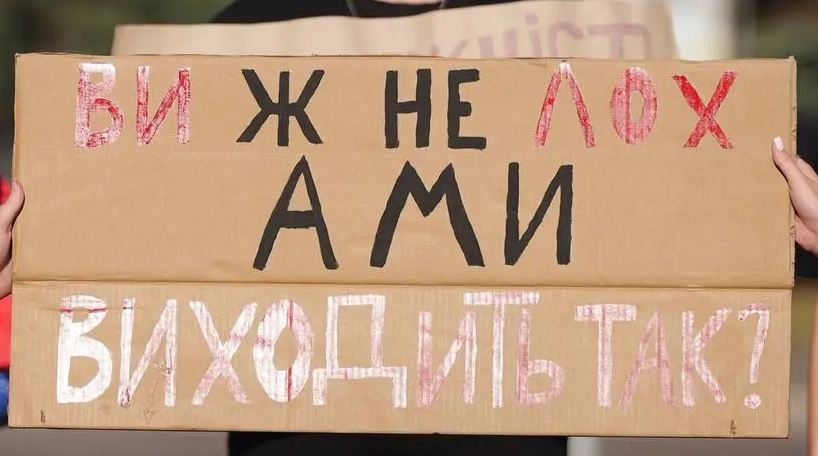 ВИ Ж НЕ ЛОХ
А МИ
ВИХОДИТЬ ТАК?